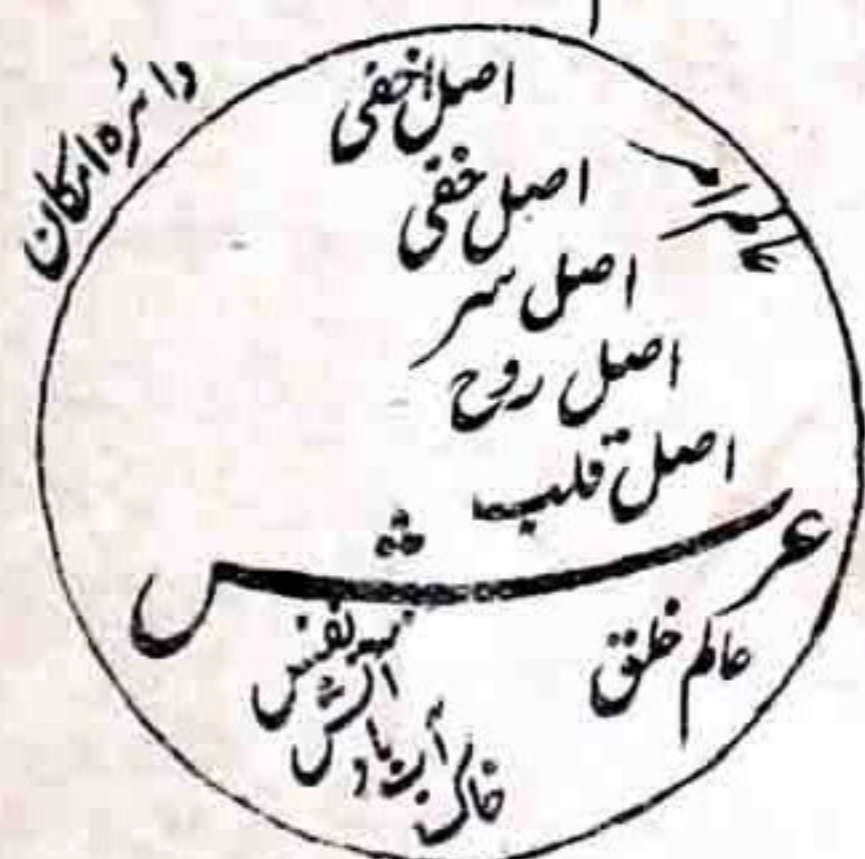 دائرہ امکان
اصل اخفی
عالم امر
اصل خفی
اصل سر
اصل روح
اصل قلب
عرش
عالم خلق
نفس
آتش
باد
آب
خاک